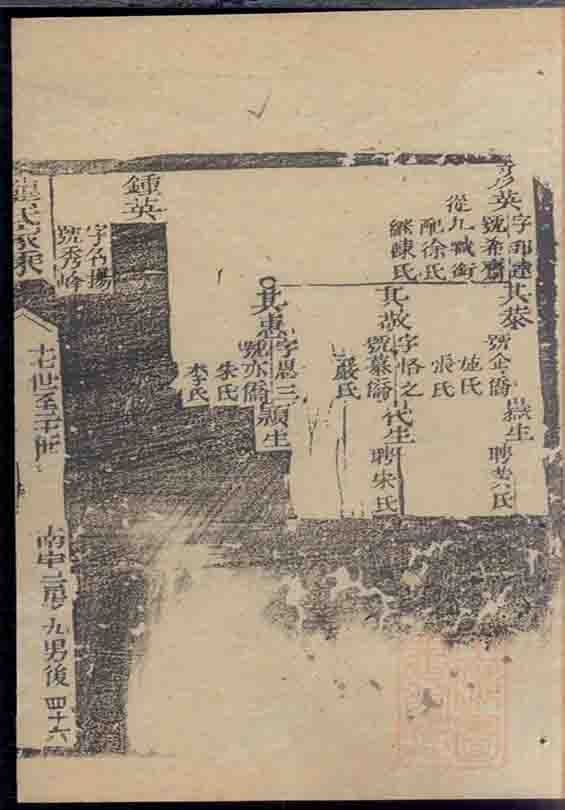 英
字
號希齋
從九職銜
配徐氏
繼陳氏
其蓁
號企僑
施氏
張氏
生
聘
氏
其敬
字恪之
號慕僑
嚴氏
代生
聘朱氏
其惠
字恩三
號亦僑
朱氏
李氏
穎生
鍾英
字名揚
號秀峰
氏家乘
十七世至二十世
南申三房九男後
四十六